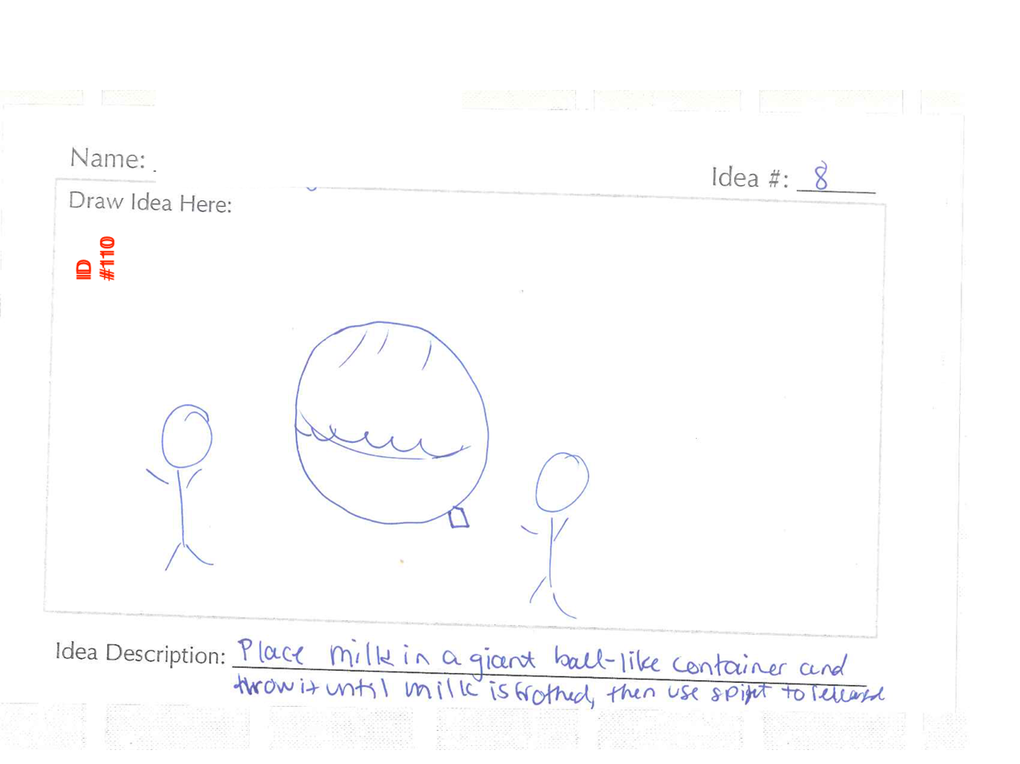 Name:
Idea #: 8
Draw Idea Here:
ID
#110
Idea Description: Place milk in a giant ball-like container and
throw it until milk is frothed, then use to release